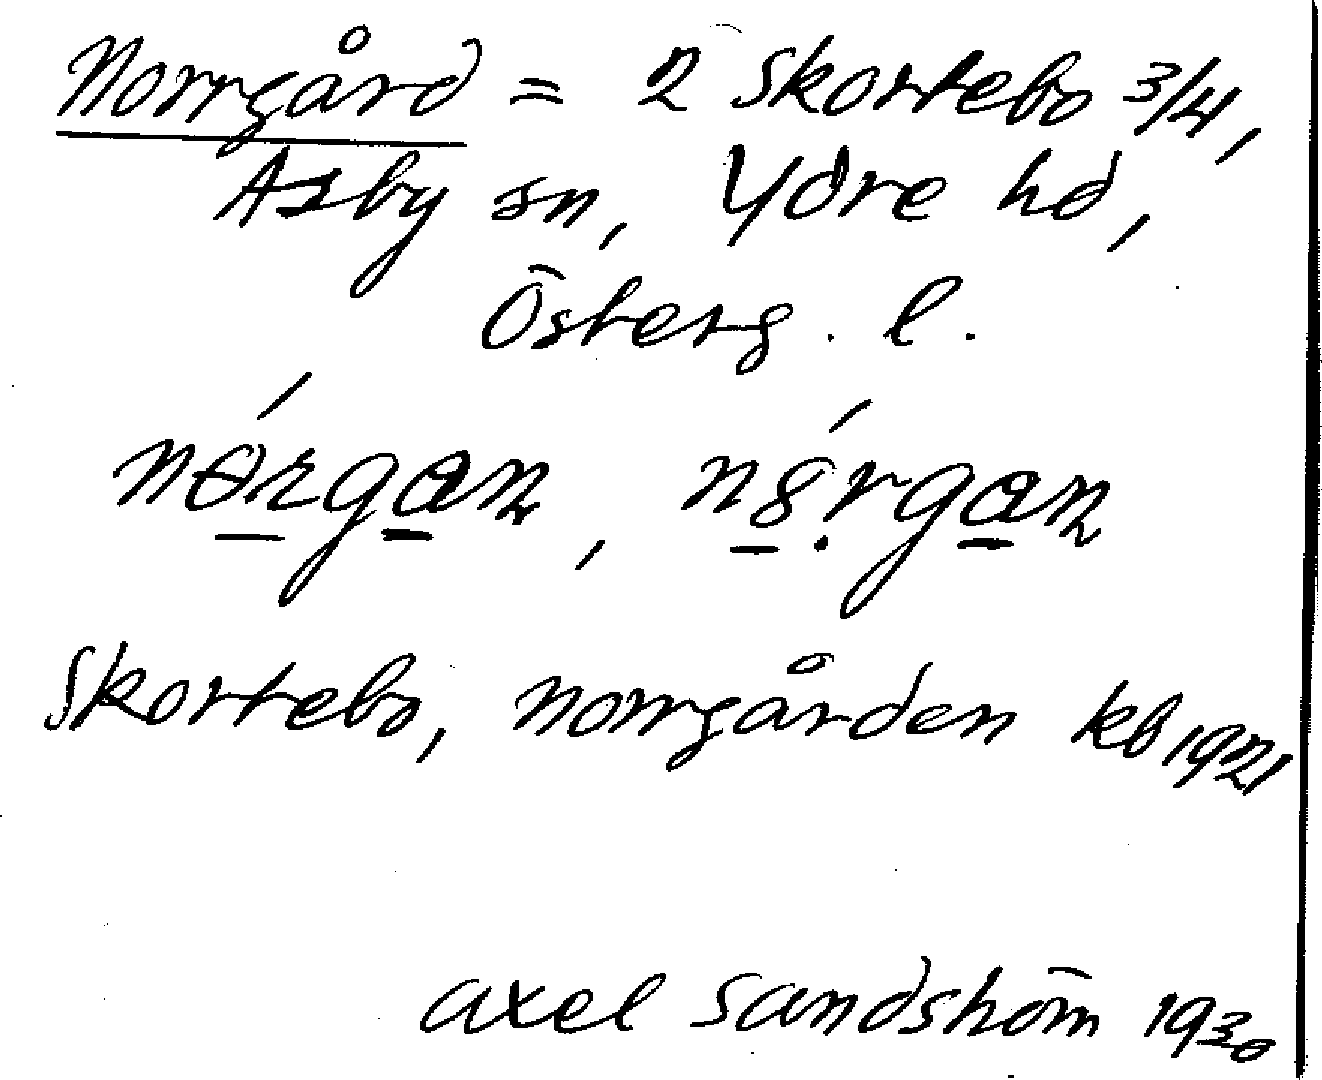 Norrgård = 2 Skortebo 3/4,
Asby sn, Ydre hd,
Österg. l.
Skortebo, norrgården kb 1921
axel sandström 1930